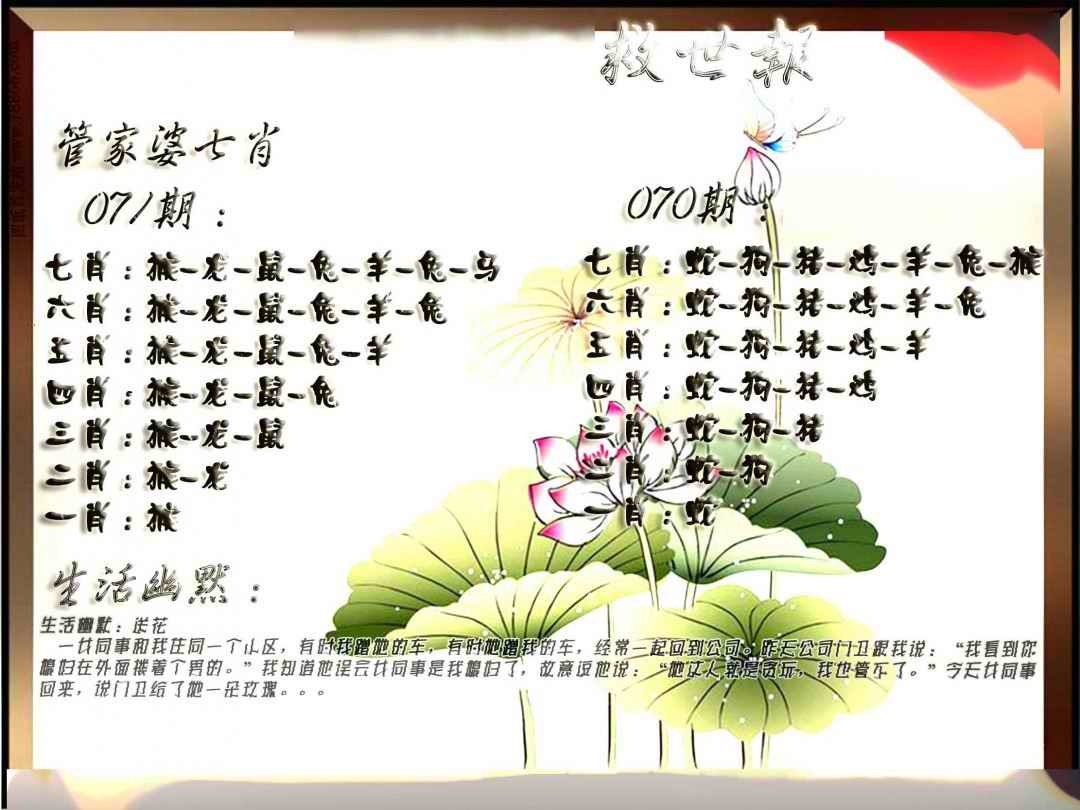 救世報
管家婆七肖
071期：
七肖：猴-龙-鼠-兔-羊-兔-马
六肖：猴-龙-鼠-兔-羊-兔
五肖：猴-龙-鼠-兔-羊
四肖：猴-龙-鼠-兔
三肖：猴-龙-鼠
二肖：猴-龙
一肖：猴
070期：
七肖：蛇-狗-猪-鸡-羊-兔-猴
六肖：蛇-狗-猪-鸡-羊-兔
五肖：蛇-狗-猪-鸡-羊
四肖：蛇-狗-猪-鸡
三肖：蛇-狗-猪
二肖：蛇-狗
一肖：蛇
生活幽默：
生活幽默：送花
一女同事和我住同一个小区，有时我蹭她的车，有时她蹭我的车，经常一起回到公司。昨天公司门卫跟我说：“我看到你
媳妇在外面搂着个男的。”我知道他误会女同事是我媳妇了，故意逗他说：“她这人就是贪玩，我也管不了。”今天女同事
回来，说门卫给了她一朵玫瑰。。。